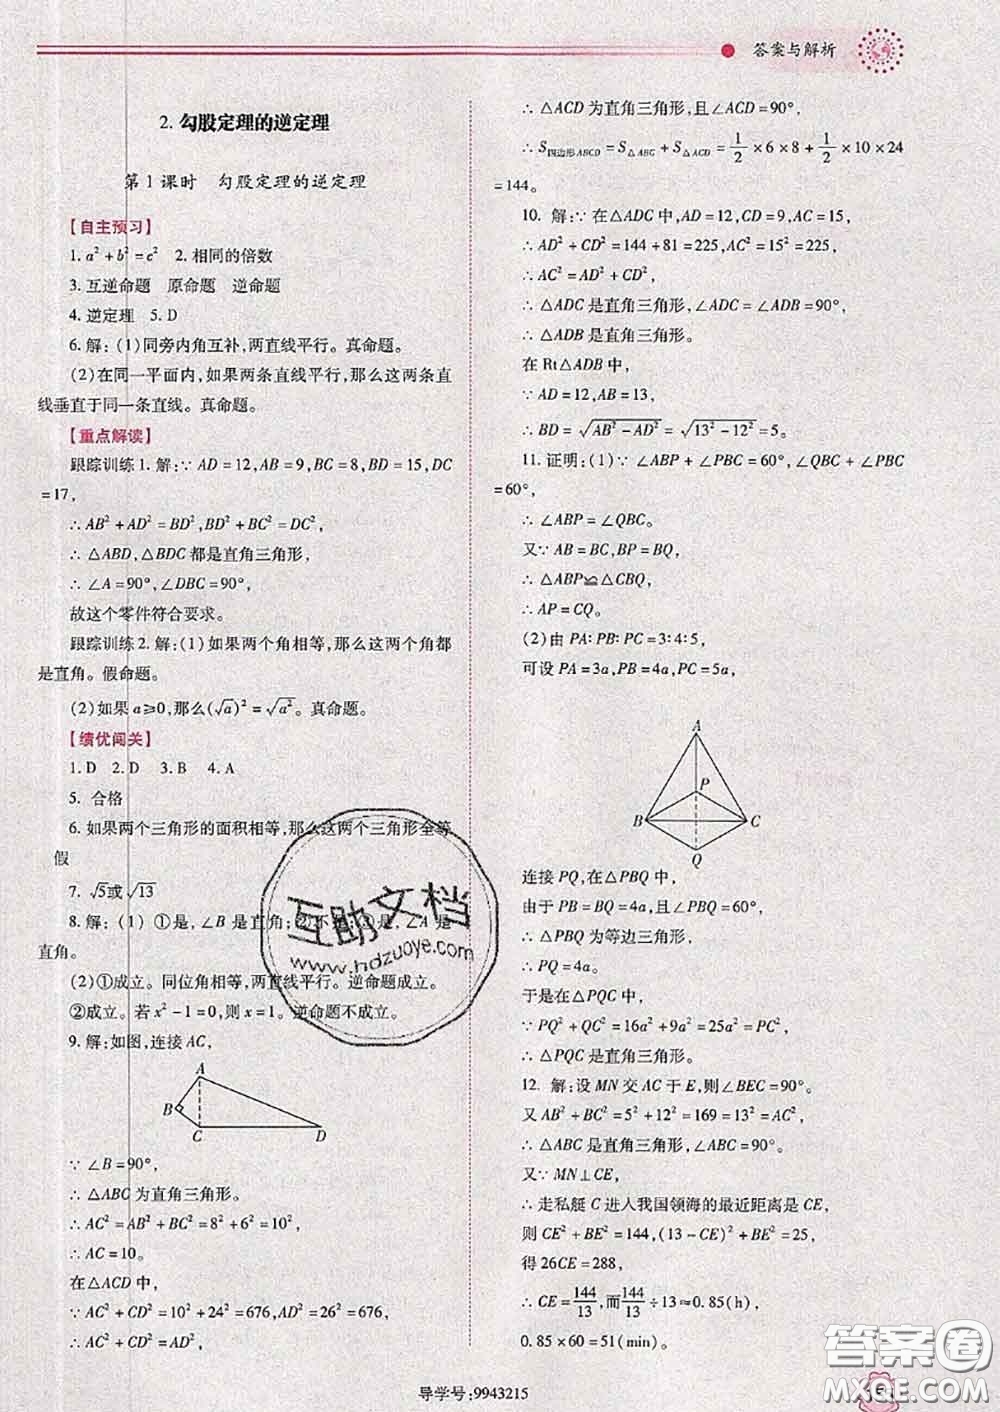 答案与解析
2. 勾股定理的逆定理
第1课时 勾股定理的逆定理
【自主预习】
1. a²+b²=c² 2. 相同的倍数
3. 互逆命题 原命题 逆命题
4. 逆定理 5. D
6. 解:(1)同旁内角互补,两直线平行。真命题。
(2)在同一平面内,如果两条直线平行,那么这两条直
线垂直于同一条直线。真命题。
【重点解读】
跟踪训练1. 解:∵AD=12,AB=9,BC=8,BD=15,DC
=17,
∴AB²+AD²=BD²,BD²+BC²=DC²,
∴△ABD,△BDC都是直角三角形,
∴∠A=90°,∠DBC=90°。
故这个零件符合要求。
跟踪训练2. 解:(1)如果两个角相等,那么这两个角都
是直角。假命题。
(2)如果a≥0,那么(√a)²=√a²。真命题。
【绩优闯关】
1. D 2. D 3. B 4. A
5. 合格
6. 如果两个三角形的面积相等,那么这两个三角形全等
假
7. √5或√13
8. 解:(1)①是,∠B是直角;②不是;③是,∠A是
直角。
(2)①成立。同位角相等,两直线平行。逆命题成立。
②成立。若x²-1=0,则x=1。逆命题不成立。
9. 解:如图,连接AC,
A
B
C D
∵∠B=90°,
∴△ABC为直角三角形。
∴AC²=AB²+BC²=8²+6²=10²,
∴AC=10。
在△ACD中,
∵AC²+CD²=10²+24²=676,AD²=26²=676,
∴AC²+CD²=AD²,
∴△ACD为直角三角形,且∠ACD=90°,
∴S四边形ABCD=S△ABC+S△ACD=1/2×6×8+1/2×10×24
=144。
10. 解:∵在△ADC中,AD=12,CD=9,AC=15,
∴AD²+CD²=144+81=225,AC²=15²=225,
∴AC²=AD²+CD²,
∴△ADC是直角三角形,∠ADC=∠ADB=90°,
∴△ADB是直角三角形。
在Rt△ADB中,
∵AD=12,AB=13,
∴BD=√AB²-AD²=√13²-12²=5。
11. 证明:(1)∵∠ABP+∠PBC=60°,∠QBC+∠PBC
=60°,
∴∠ABP=∠QBC。
又∵AB=BC,BP=BQ,
∴△ABP≌△CBQ,
∴AP=CQ。
(2)由PA∶PB∶PC=3∶4∶5,
可设PA=3a,PB=4a,PC=5a,
A
P
B C
Q
连接PQ,在△PBQ中,
由于PB=BQ=4a,且∠PBQ=60°,
∴△PBQ为等边三角形,
∴PQ=4a。
于是在△PQC中,
∵PQ²+QC²=16a²+9a²=25a²=PC²,
∴△PQC是直角三角形。
12. 解:设MN交AC于E,则∠BEC=90°。
又AB²+BC²=5²+12²=169=13²=AC²,
∴△ABC是直角三角形,∠ABC=90°。
又∵MN⊥CE,
∴走私艇C进入我国领海的最近距离是CE,
则CE²+BE²=144,(13-CE)²+BE²=25,
得26CE=288,
∴CE=144/13,而144/13÷13≈0.85(h),
0.85×60=51(min)。
导学号:9943215
互助文档
www.hdzuoye.com
答案圈
MXQE.COM